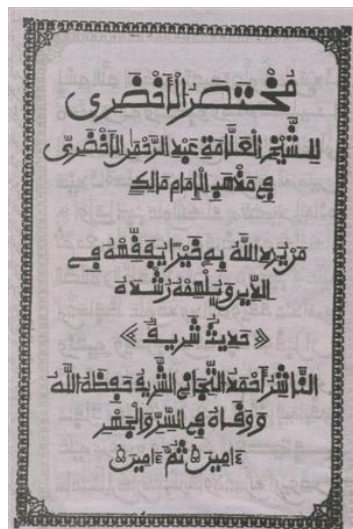 مُخْتَصَرُ الْأَخْضَرِى
لِلشَّيْخِ الْعَلَّامَةِ عَبْدِ الرَّحْمٰنِ الْأَخْضَرِى
فِى مَذْهَبِ الْإِمَامِ مَالِكٍ
مَنْ يُرِدِ اللَّهُ بِهِ خَيْرًا يُفَقِّهْهُ فِى
الدِّينِ وَيُلْهِمْهُ رُشْدَهُ
﴿ حَدِيثٌ شَرِيفٌ ﴾
النَّاشِرُ أَحْمَدُ التِّجَانِى الشَّرِيفُ حَفِظَهُ اللَّهُ
وَوَقَاهُ فِى السِّرِّ وَالْجَهْرِ
ءَامِينَ ثُمَّ ءَامِينَ